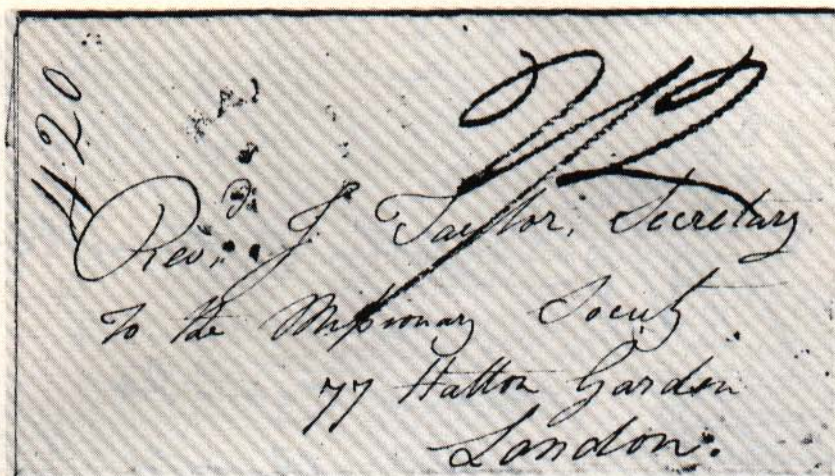 420
2/2
Revd. J Taylor, Secretary
to the Missionary Society
77 Hatton Garden
London.